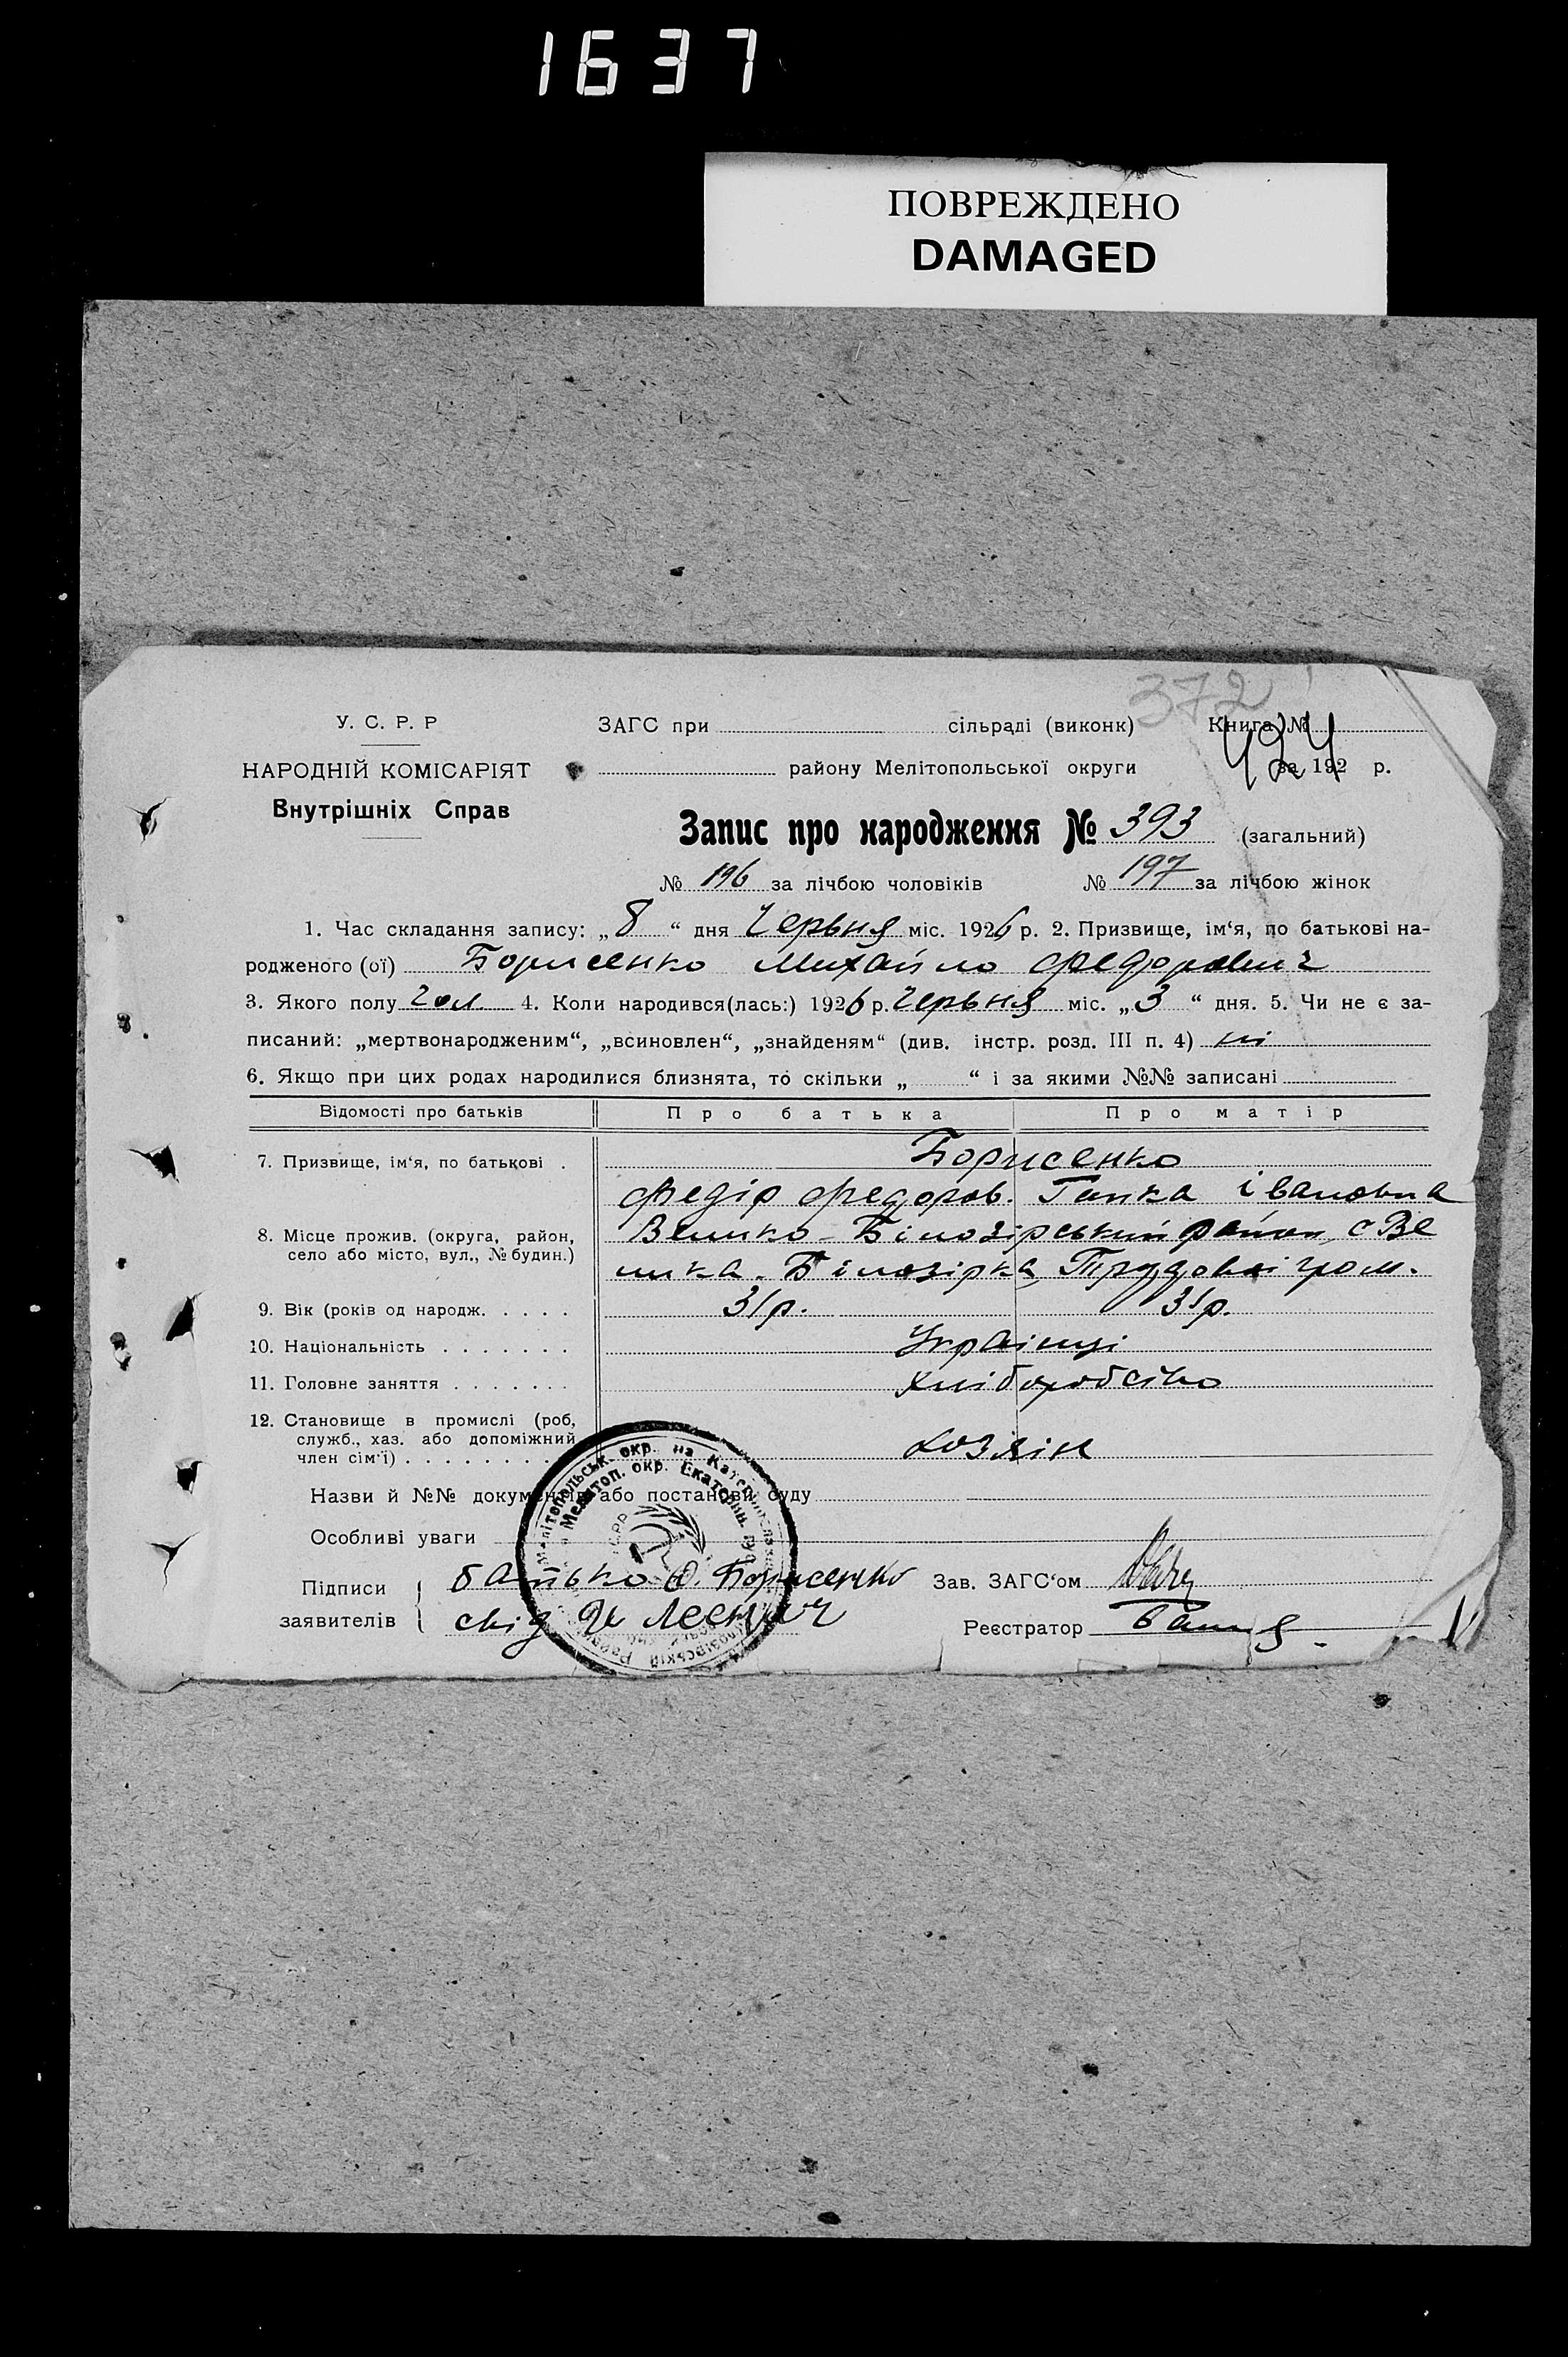 1637
ПОВРЕЖДЕНО
DAMAGED
372
У. С. Р. Р
ЗАГС при сільраді (виконк) Книга №
424
НАРОДНІЙ КОМІСАРІЯТ
району Мелітопольської округи за 192 р.
Внутрішніх Справ
Запис про народження № 393 (загальний)
№ 196 за лічбою чоловіків № 197 за лічбою жінок
1. Час складання запису: „8“ дня Червня міс. 1926 р. 2. Призвище, ім‘я, по батькові на-
родженого (ої) Борисенко Михайло Федорович
3. Якого полу чол. 4. Коли народився(лась:) 1926 р. Червня міс. „3“ дня. 5. Чи не є за-
писаний: „мертвонародженим“, „всиновлен“, „знайденям“ (див. інстр. розд. III п. 4) ні
6. Якщо при цих родах народилися близнята, то скільки „ “ і за якими №№ записані
Відомості про батьків Про батька Про матір
7. Призвище, ім‘я, по батькові . Борисенко
Федір Федоров. Ганка Івановна
8. Місце прожив. (округа, район, Велико-Білозірський район, с Ве
село або місто, вул., № будин.)
лика-Білозірка, Трудовоі гром.
9. Вік (років од народж. . . . . 31 р. 31 р.
10. Національність . . . . . . . Українці
11. Головне заняття . . . . . . . Хліборобство
12. Становище в промислі (роб,
служб., хаз. або допоміжний хозяін
член сім‘ї) . . . . . . . . .
Назви й №№ документів або постанови суду
Особливі уваги
Підписи батько Ф. Борисенко Зав. ЗАГС‘ом
заявителів свід Реєстратор
Мелітопольськ. окр. на Катерин
Мелитоп. окр. Екатерин. гу